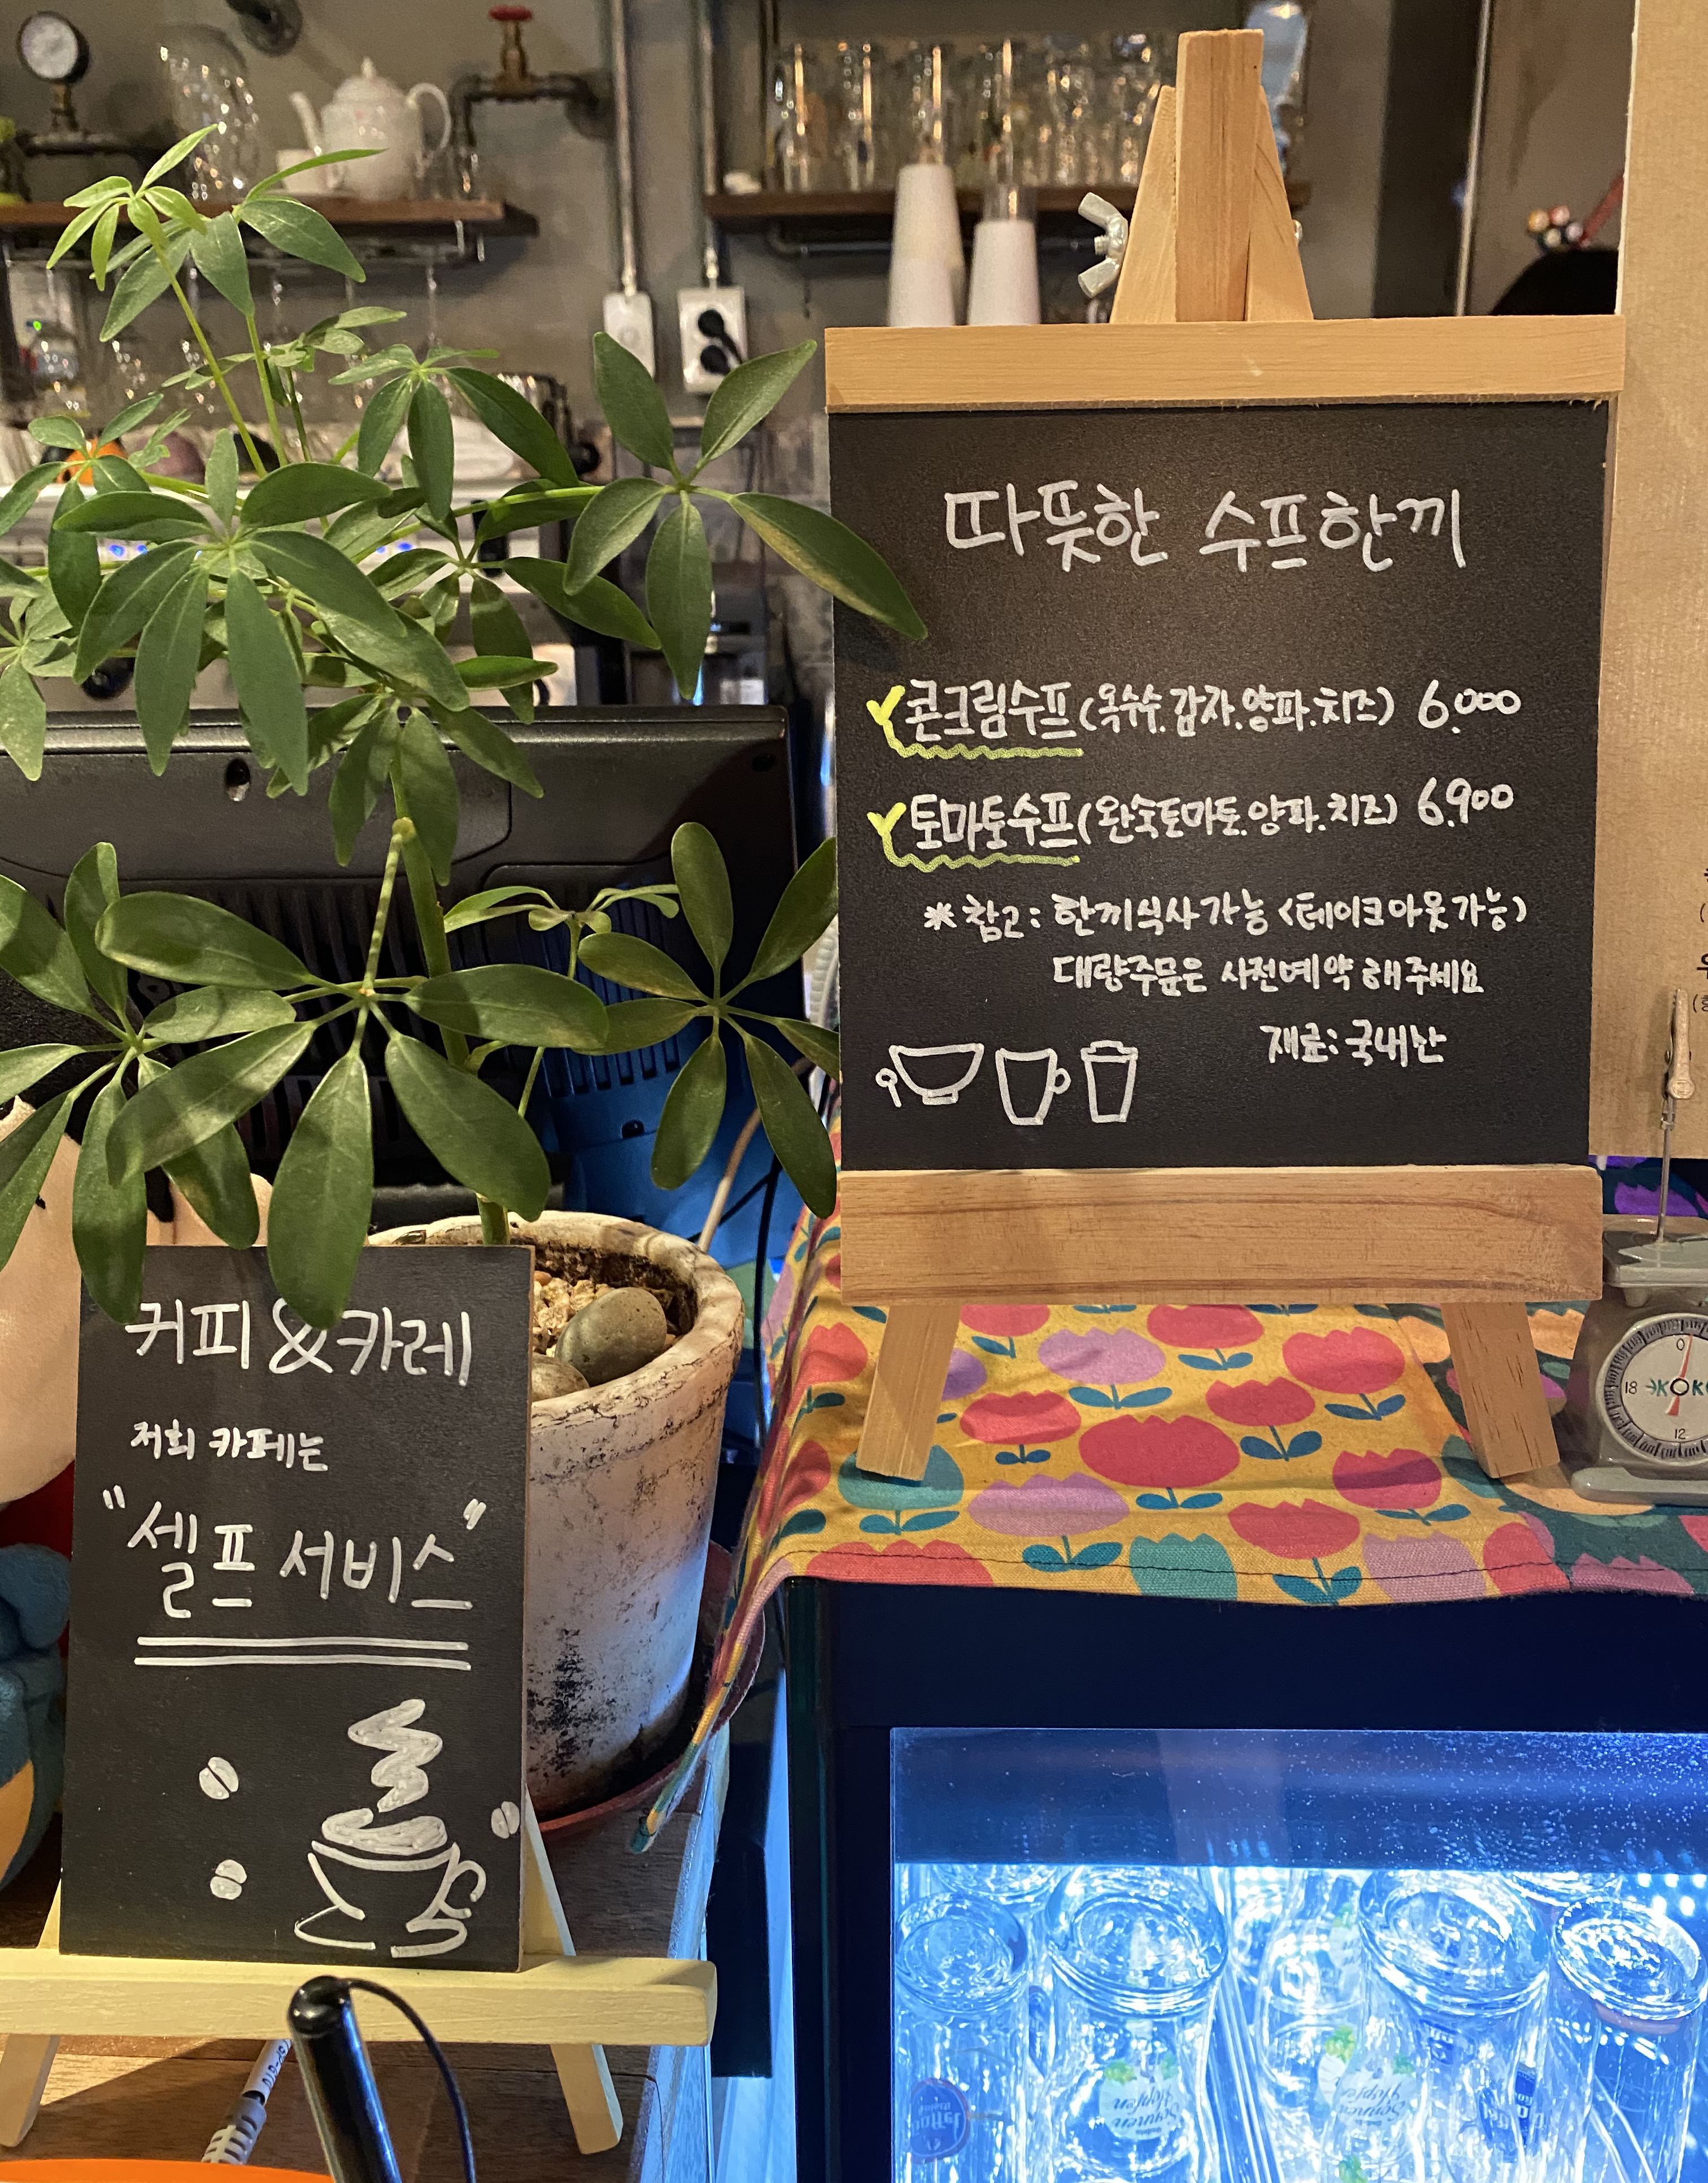 따뜻한 수프한끼
콘크림수프(옥수수.감자.양파.치즈) 6.000
토마토수프(완숙토마토.양파.치즈) 6.900
* 참고: 한끼식사가능 <테이크아웃가능)
대량주문은 사전예약해주세요
재료: 국내산
커피&카레
저희 카페는
"셀프 서비스"
0
18
12